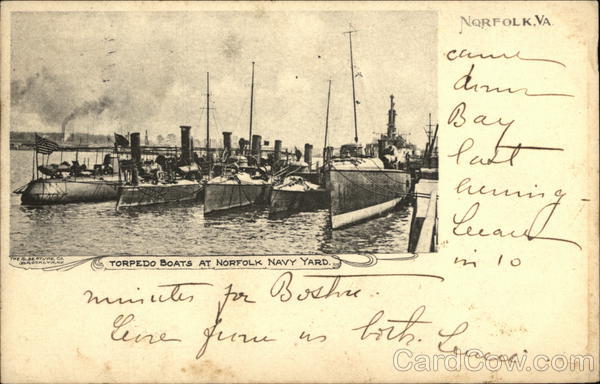 NORFOLK, VA.
came
down
Bay
last
evening -
Leave
in 10
THE ALBERTYPE CO.
BROOKLYN, N.Y.
TORPEDO BOATS AT NORFOLK NAVY YARD.
minutes for Boston.
Love from us both.
CardCow.com